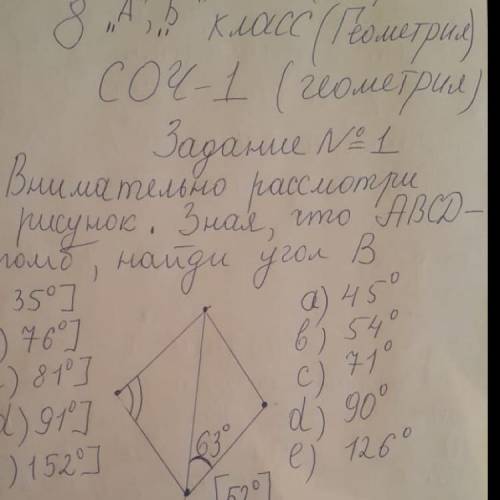 8 „А", „Б" класс (Геометрия)
СОЧ-1 (геометрия)
Задание №1
Внимательно рассмотри
рисунок. Зная, что ABCD-
ромб, найди угол B
35°]
) 76°]
) 81°]
d) 91°]
) 152°]
63°
[52°]
a) 45°
b) 54°
c) 71°
d) 90°
e) 126°